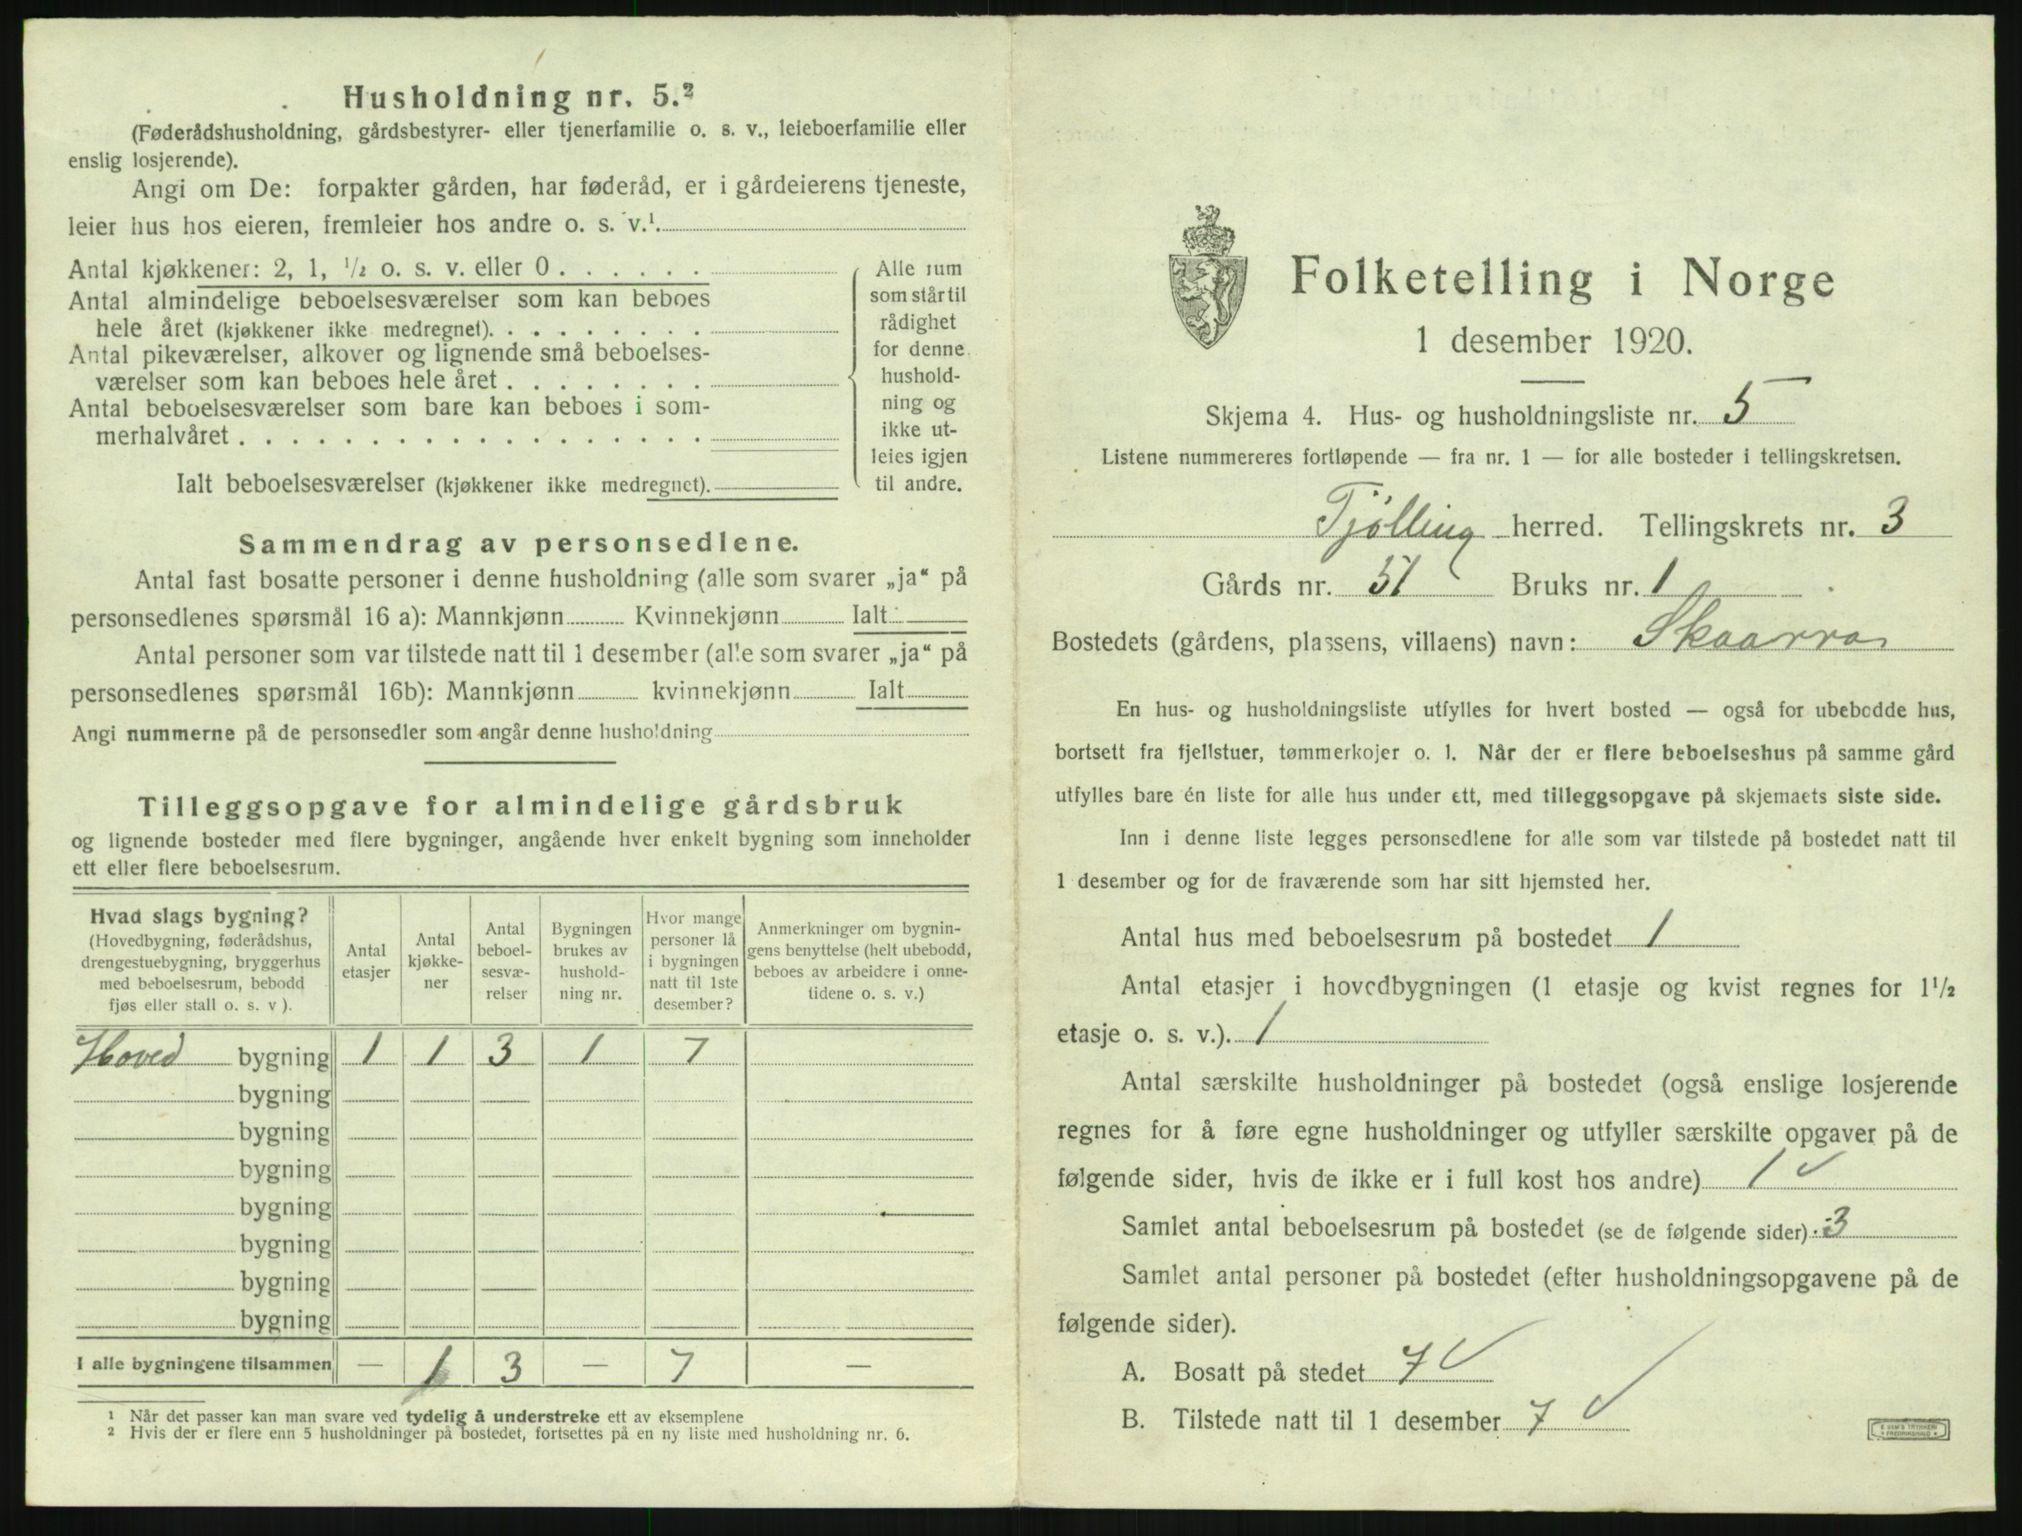 Husholdning nr. 5.²
(Føderådshusholdning, gårdsbestyrer- eller tjenerfamilie o. s. v., leieboerfamilie eller
enslig losjerende).
Angi om De: forpakter gården, har føderåd, er i gårdeierens tjeneste,
leier hus hos eieren, fremleier hos andre o. s. v.¹
Antal kjøkkener: 2, 1, ½ o. s. v. eller 0 . . . . . .
Antal almindelige beboelsesværelser som kan beboes
hele året (kjøkkener ikke medregnet). . . . . . . . .
Antal pikeværelser, alkover og lignende små beboelses-
værelser som kan beboes hele året . . . . . . . .
Antal beboelsesværelser som bare kan beboes i som-
merhalvåret . . . . . . . . . . . . . . . . . .
Ialt beboelsesværelser (kjøkkener ikke medregnet).
Alle rum
som står til
rådighet
for denne
hushold-
ning og
ikke ut-
leies igjen
til andre.
Sammendrag av personsedlene.
Antal fast bosatte personer i denne husholdning (alle som svarer „ja“ på
personsedlenes spørsmål 16 a): Mannkjønn Kvinnekjønn Ialt
Antal personer som var tilstede natt til 1 desember (alle som svarer „ja“ på
personsedlenes spørsmål 16b): Mannkjønn kvinnekjønn Ialt
Angi nummerne på de personsedler som angår denne husholdning
Tilleggsopgave for almindelige gårdsbruk
og lignende bosteder med flere bygninger, angående hver enkelt bygning som inneholder
ett eller flere beboelsesrum.
Hvad slags bygning?
(Hovedbygning, føderådshus,
drengestuebygning, bryggerhus
med beboelsesrum, bebodd
fjøs eller stall o. s. v ).
Antal
etasjer
Antal
kjøkke-
ner
Antal
beboel-
sesvæ-
relser
Bygningen
brukes av
hushold-
ning nr.
Hvor mange
personer lå
i bygningen
natt til 1ste
desember?
Anmerkninger om bygnin-
gens benyttelse (helt ubebodd,
beboes av arbeidere i onne-
tidene o. s. v.)
Hoved bygning 1 1 3 1 7
bygning
bygning
bygning
bygning
bygning
bygning
bygning
I alle bygningene tilsammen — 1 3 — 7 —
¹ Når det passer kan man svare ved tydelig å understreke ett av eksemplene
² Hvis der er flere enn 5 husholdninger på bostedet, fortsettes på en ny liste med husholdning nr. 6.
Folketelling i Norge
1 desember 1920.
Skjema 4. Hus- og husholdningsliste nr. 5
Listene nummereres fortløpende — fra nr. 1 — for alle bosteder i tellingskretsen.
Tjølling herred. Tellingskrets nr. 3
Gårds nr. 51 Bruks nr. 1
Bostedets (gårdens, plassens, villaens) navn: Skaarra
En hus- og husholdningsliste utfylles for hvert bosted — også for ubebodde hus,
bortsett fra fjellstuer, tømmerkojer o. l. Når der er flere beboelseshus på samme gård
utfylles bare én liste for alle hus under ett, med tilleggsopgave på skjemaets siste side.
Inn i denne liste legges personsedlene for alle som var tilstede på bostedet natt til
1 desember og for de fraværende som har sitt hjemsted her.
Antal hus med beboelsesrum på bostedet 1
Antal etasjer i hovedbygningen (1 etasje og kvist regnes for 1½
etasje o. s. v.). 1
Antal særskilte husholdninger på bostedet (også enslige losjerende
regnes for å føre egne husholdninger og utfyller særskilte opgaver på de
følgende sider, hvis de ikke er i full kost hos andre) 1 ✓
Samlet antal beboelsesrum på bostedet (se de følgende sider) 3
Samlet antal personer på bostedet (efter husholdningsopgavene på de
følgende sider).
A. Bosatt på stedet 7 ✓
B. Tilstede natt til 1 desember 7 ✓